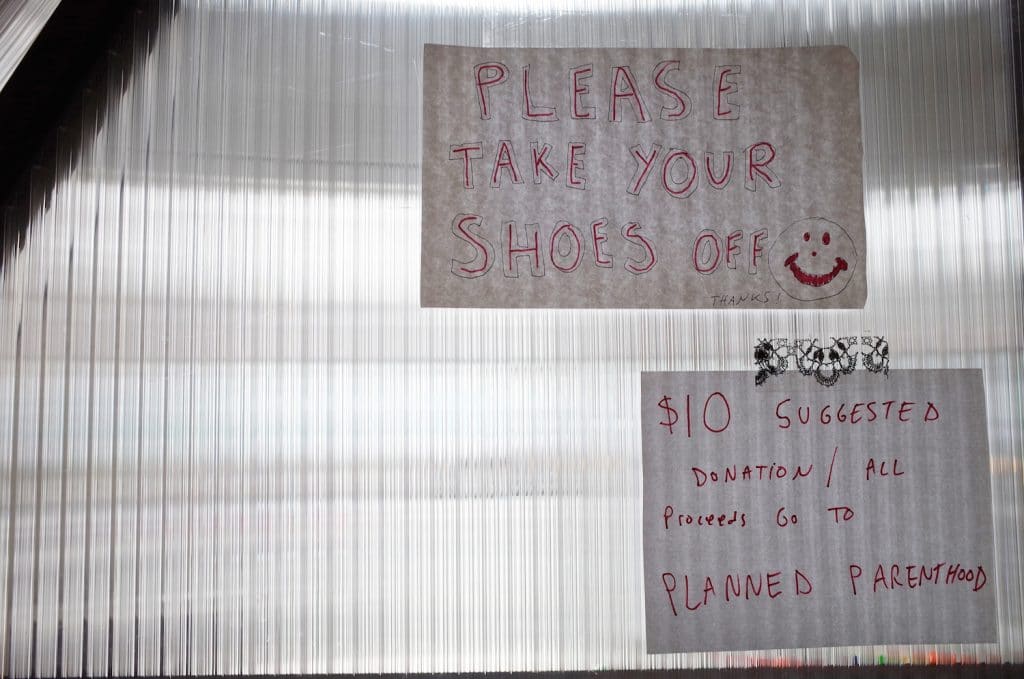 PLEASE
TAKE YOUR
SHOES OFF
THANKS!
$10 SUGGESTED
DONATION / ALL
Proceeds Go TO
PLANNED PARENTHOOD